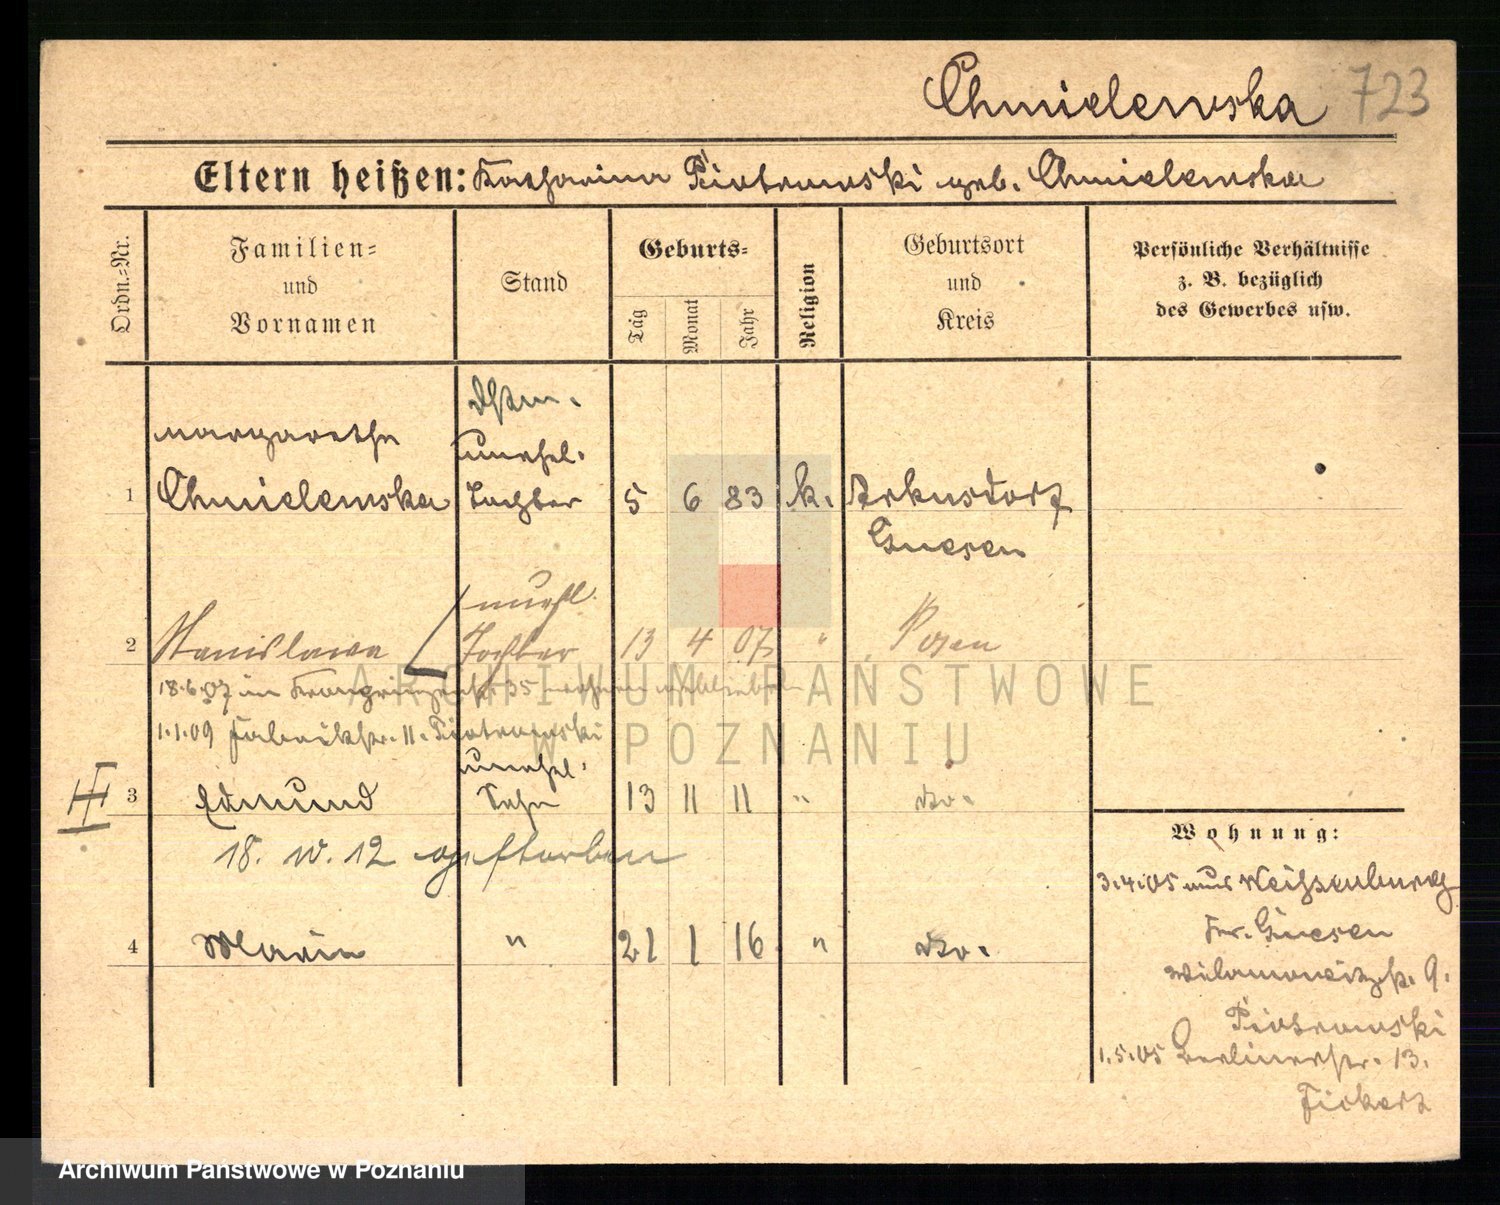 Chmielewska 723
Eltern heißen: Katharina Piotrowski geb. Chmielewska
Ordn.-Nr.
Familien-
und
Vornamen
Stand
Geburts-
Tag
Monat
Jahr
Religion
Geburtsort
und
Kreis
Persönliche Verhältnisse
z. B. bezüglich
des Gewerbes usw.
Dstm.
Margarethe
unehel.
1 Chmielewska Tochter 5 6 83 k. Arkusdorf
Gnesen
unehl.
2 Stanislawa Tochter 13 4 07 " Posen
18.6.07 in Kronprinzenstr. 35
1.1.09 Fabrikstr. 11. Piotrowski
unehel.
III 3 Edmund Sohn 13 11 11 " do.
18. IV. 12 gestorben
4 Maria " 21 1 16 " do.
Wohnung:
3.4.05 aus Weissenburg
Kr. Gnesen
Wilamowitzstr. 9.
Piotrowski
1.5.05 Berlinerstr. 13.
Fickert
ARCHIWUM PAŃSTWOWE
W POZNANIU
Archiwum Państwowe w Poznaniu